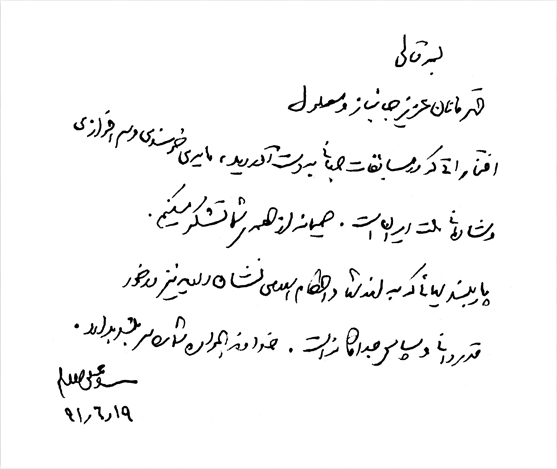 بسمه تعالی
قهرمانان عزیز جانباز و معلول
افتخاراتی که در مسابقات جهانی به دست آوردید، مایه‌ی خرسندی و سرافرازی
و شادمانی ملت ایران است. صمیمانه از همه‌ی شما تشکر میکنم.
پایبندی‌هائی که به اخلاق و احکام اسلامی نشان دادید نیز در خور
قدردانی و سپاس جداگانه است. خداوند همواره شما را سربلند بدارد.
۹۱٫۶٫۱۹